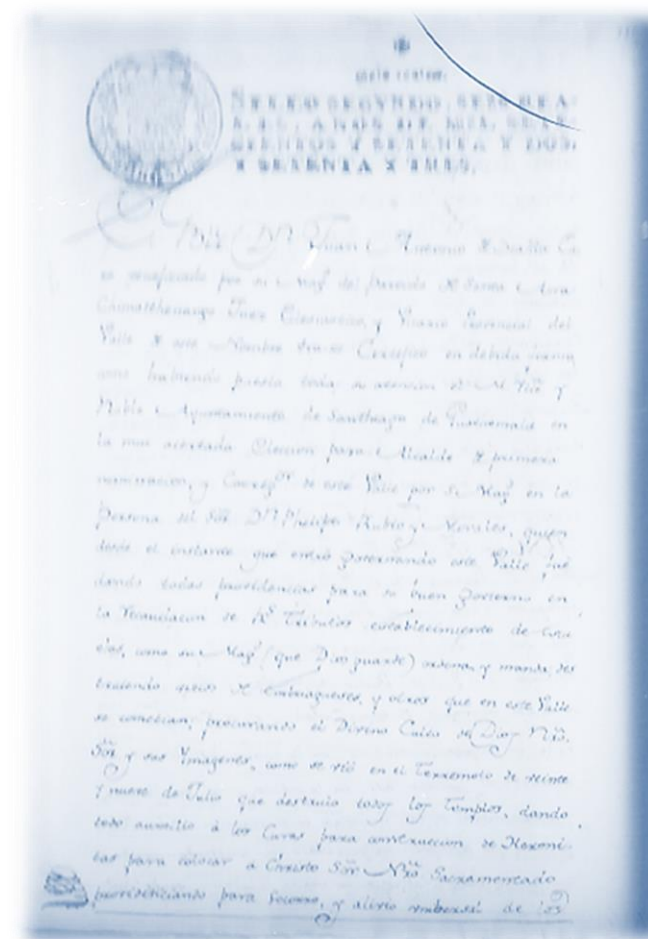 SELLO SEGVNDO, SEIS REA-
LES, AÑOS DE MIL SETE-
CIENTOS Y SETENTA Y DOS,
Y SETENTA Y TRES.
Dn Juan Antonio de
por su Magd del Partido de Santa Ana
Chimaltenango Juez y Vicario Provincial del
Valle de este Nombre Certifico en debida forma
como habiendo puesto toda su atencion el M. Ylle y
Noble Ayuntamiento de Santhiago de Guathemala en
la mas acertada Eleccion para Alcalde de primera
nominacion, y Corregor de este Valle por S. Magd en la
Persona del Sor Dn Phelipe Rubio y Morales, quien
desde el instante que entró governando este Valle fue
dando todas providencias para su buen Govierno en
la Recaudacion de Rs Tributos establecimiento de
como su Magd (que Dios guarde) ordena, y manda, des
truiendo vicios de embriagueses, y otros que en este Valle
se cometian, procurando el Divino Culto de Dios Nro.
Sor y sus Ymagenes, como se vió en el Terremoto de veinte
y nueve de Julio que destruio todos los Templos, dando
todo auxilio á los Curas para construccion de
para colocar a Christo Sor Nro Sacramentado
providenciando para socorro, y alivio de los